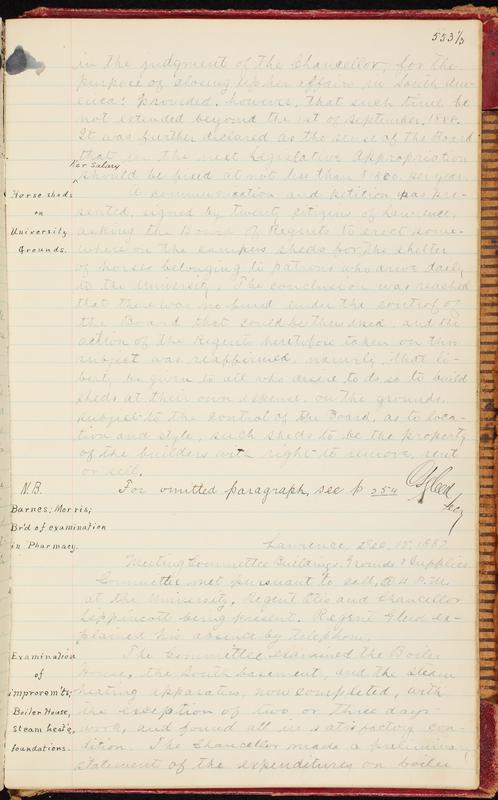 553½
in the judgment of the Chancellor, for the
purpose of closing up her affairs in South Am-
erica: provided, however, that such time be
not extended beyond the 1st of September, 1888.
It was further declared as the sense of the Board
that in the next Legislative Appropriation
her salary
should be fixed at not less than $ per year.
Horse sheds
on
University
Grounds.
A communication and petition was pre-
sented, signed by twenty citizens of Lawrence,
asking the Board of Regents to erect some-
where on the campus sheds for the shelter
of horses belonging to patrons who drive daily
to the University. The conclusion was reached
that there was no fund under the control of
the Board that could be thus used, and the
action of the Regents heretofore taken on this
subject was reaffirmed, namely, that li-
berty be given to all who desire to do so to build
sheds at their own expense, on the grounds,
subject to the control of the Board, as to loca-
tion and style, such sheds to be the property
of the builders with right to remove, rent
or sell.
N.B.
Barnes; Morris;
Br'd of examination
in Pharmacy.
For omitted paragraph, see p 254
Secy
Lawrence, Dec. 15, 1887
Meeting Committee Buildings, Grounds & Supplies.
Committee met pursuant to call, P.M.
at the University, Regent Otis and Chancellor
Lippincott being present. Regent Gleed ex-
plained his absence by telephone.
Examination
of
improvem'ts;
Boiler House,
steam heat'g,
foundations.
The Committee examined the Boiler
House, the South basement, and the steam
heating apparatus, now completed, with
the exception of two or three days
work, and found all in satisfactory con-
dition. The Chancellor made a preliminary
statement of the expenditures on boiler